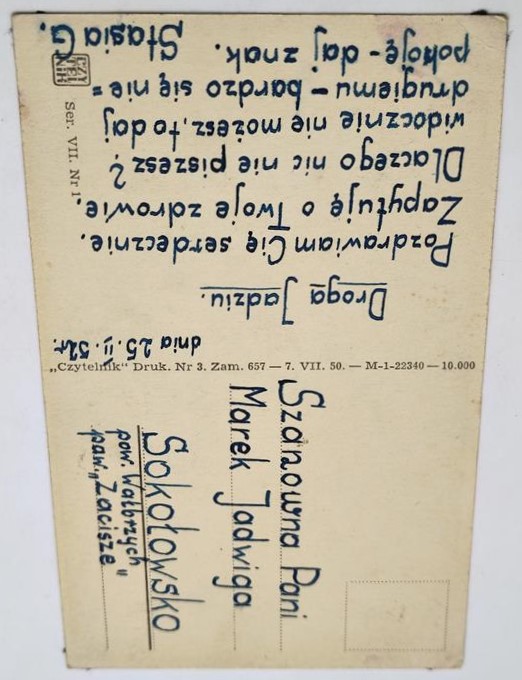 dnia 25. II. 52r.
Droga Jadziu.
Pozdrawiam Cię serdecznie.
Zapytuję o Twoje zdrowie.
Dlaczego nic nie piszesz?
widocznie nie możesz, to daj
drugiemu – bardzo się nie =
pokoję - daj znak.
Stasia G.
CZY
TEL
NIK
Ser. VII. Nr 1
„Czytelnik“ Druk. Nr 3. Zam. 657 — 7. VII. 50. — M-1-22340 — 10.000
Szanowna Pani
Marek Jadwiga
Sokołowsko
pow. Wałbrzych
paw. „Zacisze"